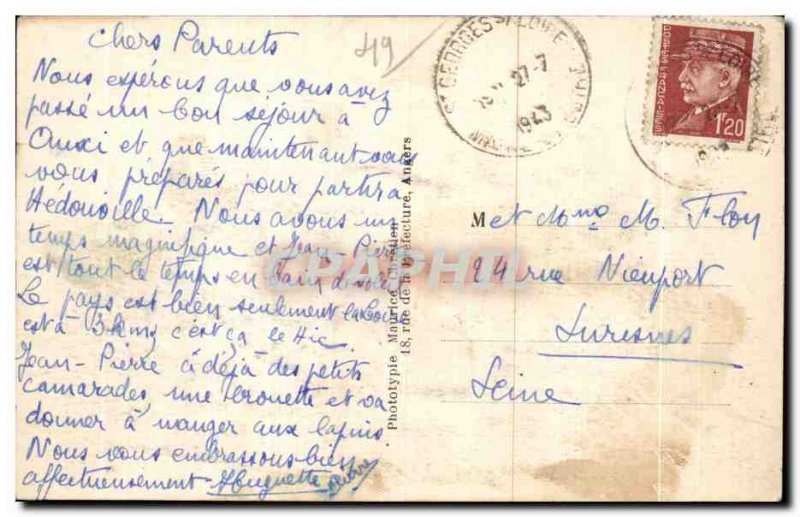 Chers Parents
419
Nous espérons que vous avez
passé un bon séjour à
et que maintenant vous
vous préparés pour partir a
Hédouville. Nous avons un
temps magnifique et Jean-Pierre
est tout le temps en bain de soleil
Le pays est bien seulement la Loire
est à 3 kms c'est ça le Hic
Jean-Pierre a déjà des petits
camarades, une brouette et va
donner à manger aux lapins.
Nous vous embrassons bien
affectueusement Huguette
Phototypie Maurice
18, rue de la Préfecture, Angers
CPAPHIL
ST GEORGES S/ LOIRE
27-7
1943
POSTES FRANÇAISES
1F20
M et Mme M. Flon
24 rue Nieuport
Suresnes
Seine